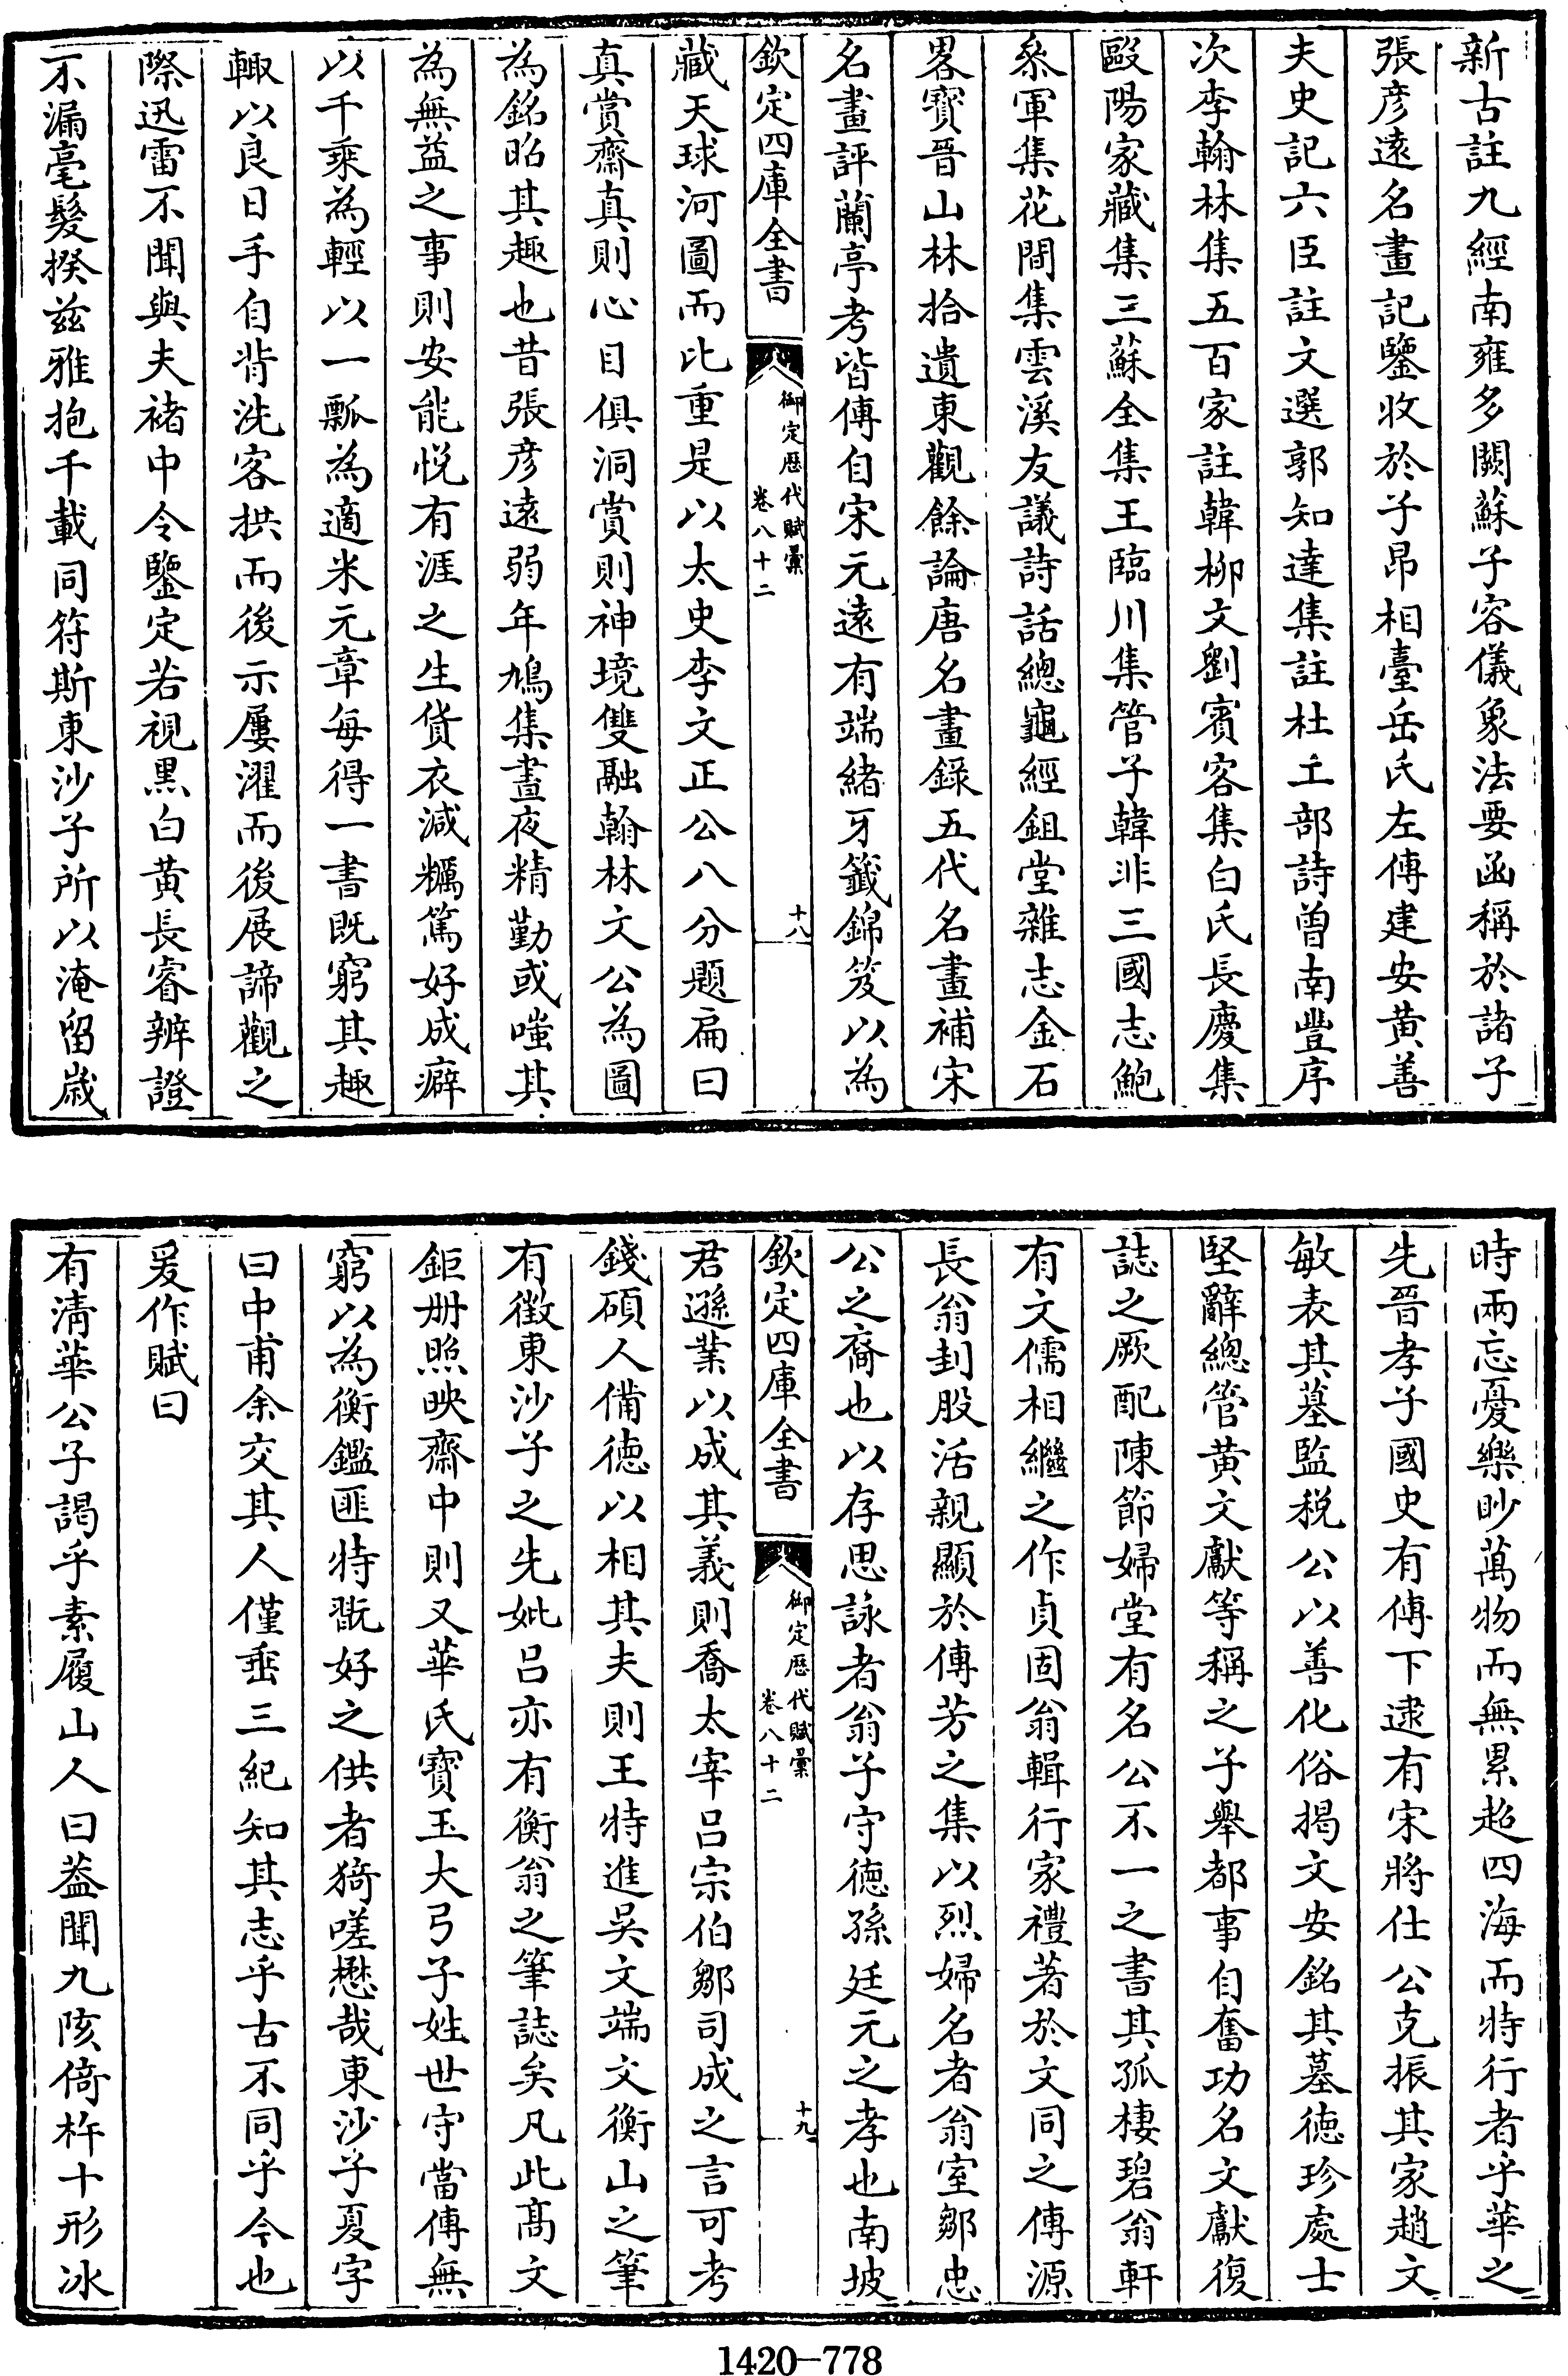 新古註九經南雍多闕蘇子容儀象法要函稱於諸子
張彦遠名畫記鑒收於子昂相臺岳氏左傳建安黄善
夫史記六臣註文選郭知達集註杜工部詩曽南豐序
次李翰林集五百家註韓柳文劉賓客集白氏長慶集
歐陽家藏集三蘇全集王臨川集管子韓非三國志鮑
叅軍集花間集雲溪友議詩話總龜經鉏堂雜志金石
畧寳晉山林拾遺東觀餘論唐名畫錄五代名畫補宋
名畫評蘭亭考皆傳自宋元遠有端緒牙籤錦笈以為
欽定四庫全書
御定歴代賦彙
卷八十二
十八
藏天球河圖而比重是以太史李文正公八分題扁曰
真賞齋真則心目俱洞賞則神境雙融翰林文公為圖
為銘昭其趣也昔張彦遠弱年鳩集晝夜精勤或嗤其
為無益之事則安能悦有涯之生貨衣減糲篤好成癖
以千乘為輕以一瓢為適米元章每得一書既窮其趣
輙以良日手自背洗客拱而後示屢濯而後展諦觀之
際迅雷不聞與夫褚中令鑒定若視黒白黄長睿辨證
不漏毫髮揆兹雅抱千載同符斯東沙子所以淹留歳
時兩忘憂樂眇萬物而無累超四海而特行者乎華之
先晉孝子國史有傳下逮有宋將仕公克振其家趙文
敏表其墓監税公以善化俗揭文安銘其墓德珍處士
堅辭總管黄文獻等稱之子舉都事自奮功名文獻復
誌之厥配陳節婦堂有名公不一之書其孤棲碧翁軒
有文儒相繼之作貞固翁輯行家禮著於文同之傳源
長翁刲股活親顯於傳芳之集以烈婦名者翁室鄒忠
公之裔也以存思詠者翁子守德孫廷元之孝也南坡
欽定四庫全書
御定歴代賦彙
卷八十二
十九
君遜業以成其義則喬太宰吕宗伯鄒司成之言可考
錢碩人備德以相其夫則王特進吳文端文衡山之筆
有徴東沙子之先妣吕亦有衡翁之筆誌矣凡此髙文
鉅册照映齋中則又華氏寳玉大弓子姓世守當傳無
窮以為衡鑑匪特翫好之供者猗嗟懋哉東沙子夏字
曰中甫余交其人僅垂三紀知其志乎古不同乎今也
爰作賦曰
有清華公子謁乎素履山人曰葢聞九陔倚杵十形冰
1420-778